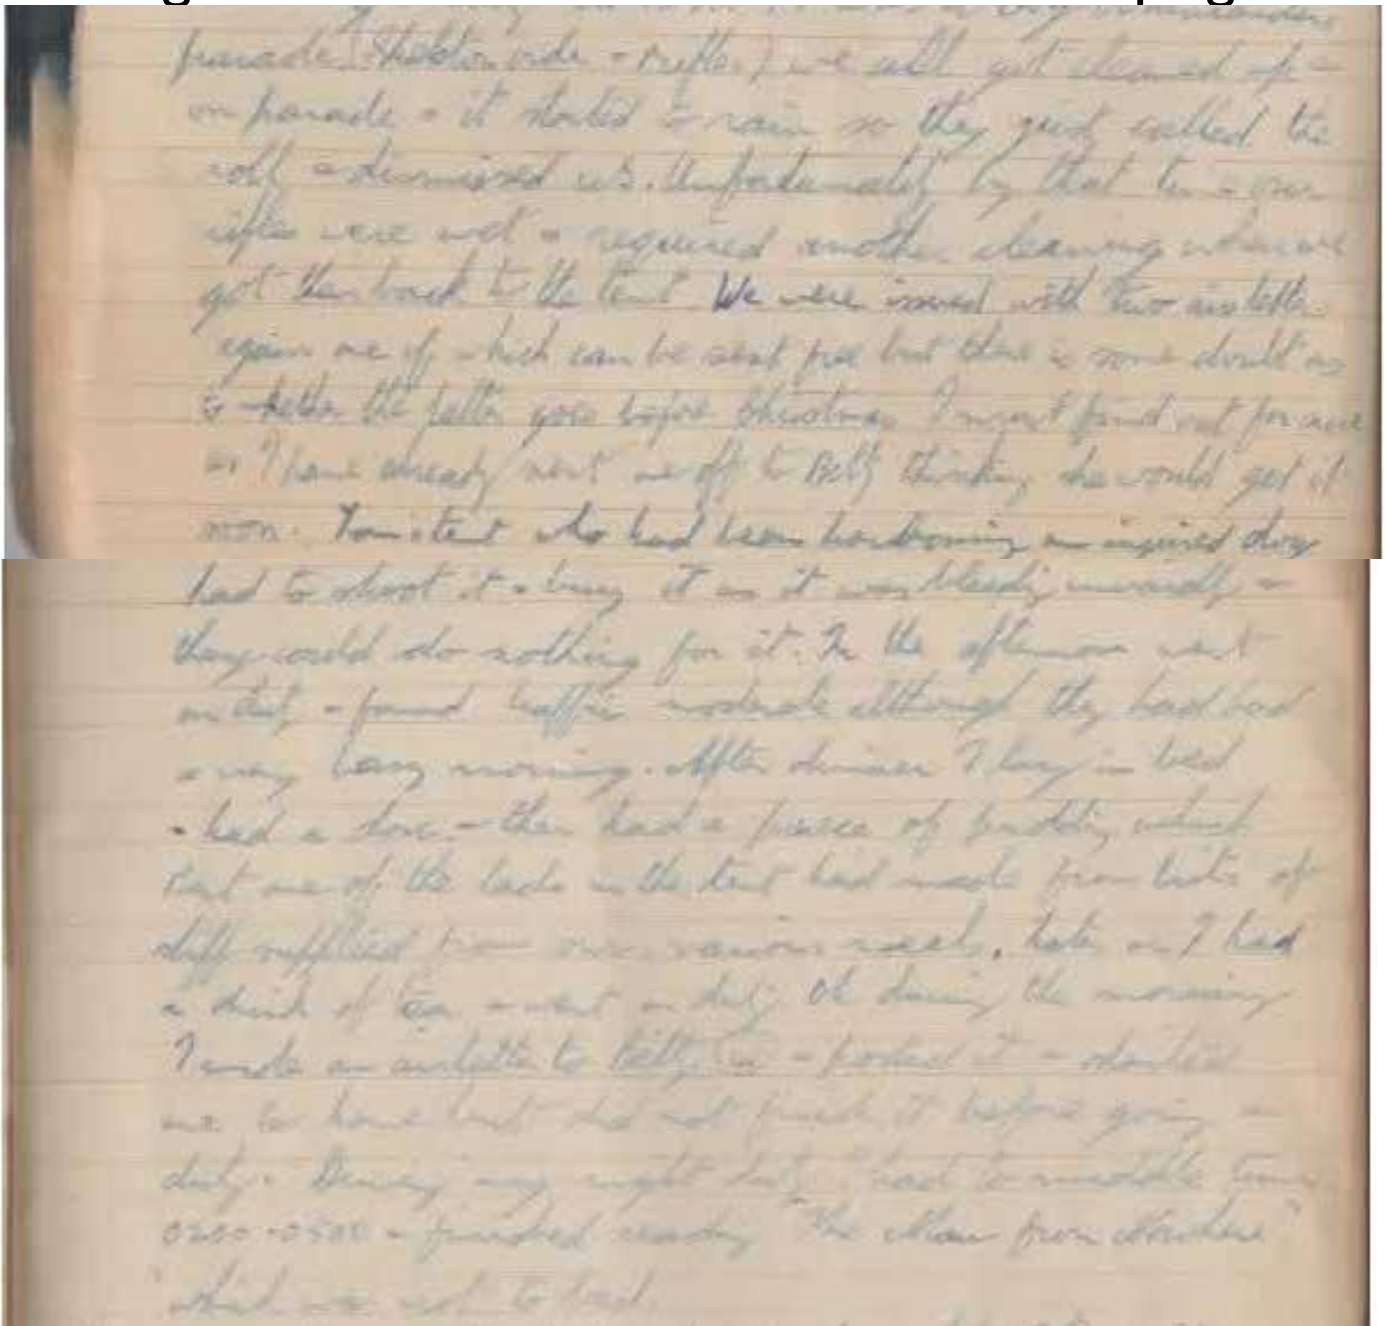 parade (Skeleton order + rifles) we all got cleaned up +
on parade + it started to rain so they just called the
roll + dismissed us. Unfortunately by that time our
rifles were wet + required another cleaning when we
got them back to the tent. We were issued with two air letters
again one of which can be sent free but there is some doubt as
to whether the letter goes before Christmas. I must find out for sure
as I have already sent one off to Betty thinking she would get it
soon. Tom's tent who had been harbouring an injured dog
had to shoot it + bury it as it was bleeding inwardly +
they could do nothing for it. In the afternoon went
on duty + found traffic moderate although they had had
a very busy morning. After dinner I lay in bed
+ had a doze + then had a piece of pudding which
one of the lads in the tent had made from bits of
stuff supplied from our various meals. Later on I had
a drink of tea + went on duty. Oh during the morning
I wrote an airletter to Betty + posted it + started
one to home but did not finish it before going on
duty. During my night duty I had to middle turn
0200-0500 + finished reading "The Man from Nowhere"
which was not to bad.